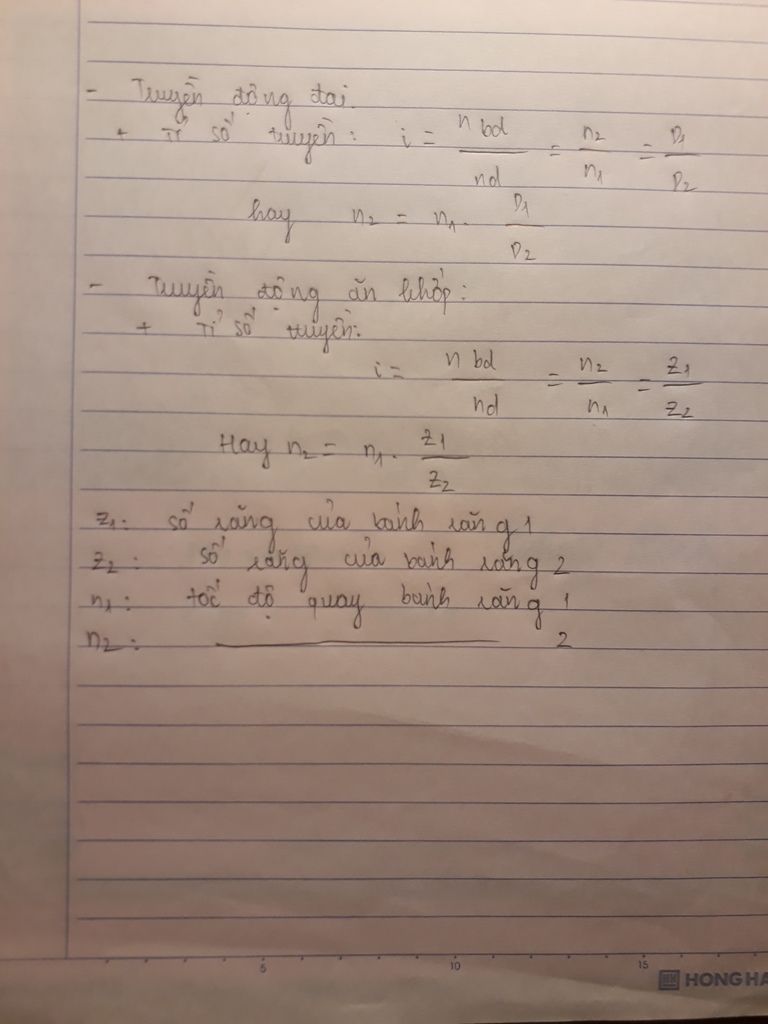 - Truyền động đai.
+ Tỉ số truyền: i = n bd / nd = n2 / n1 = D1 / D2
hay n2 = n1. D1 / D2
- Truyền động ăn khớp:
+ Tỉ số truyền:
i = n bd / nd = n2 / n1 = Z1 / Z2
Hay n2 = n1. Z1 / Z2
Z1: số răng của bánh răng 1
Z2: số răng của bánh răng 2
n1: tốc độ quay bánh răng 1
n2: ———————— 2
5 10 15
HONG HA